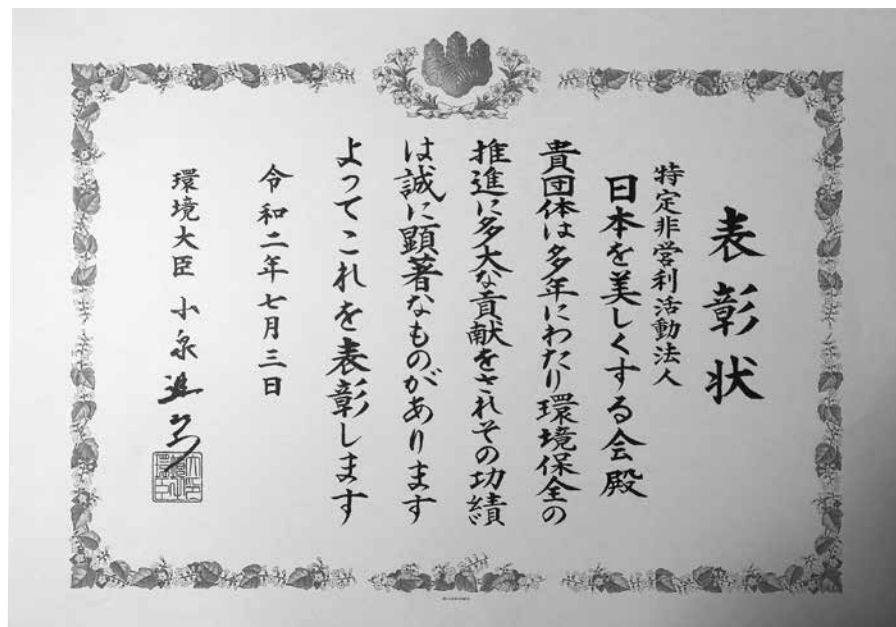 表彰状
特定非営利活動法人
日本を美しくする会殿
貴団体は多年にわたり環境保全の
推進に多大な貢献をされその功績
は誠に顕著なものがあります
よってこれを表彰します
令和二年七月三日
環境大臣 小泉進次郎